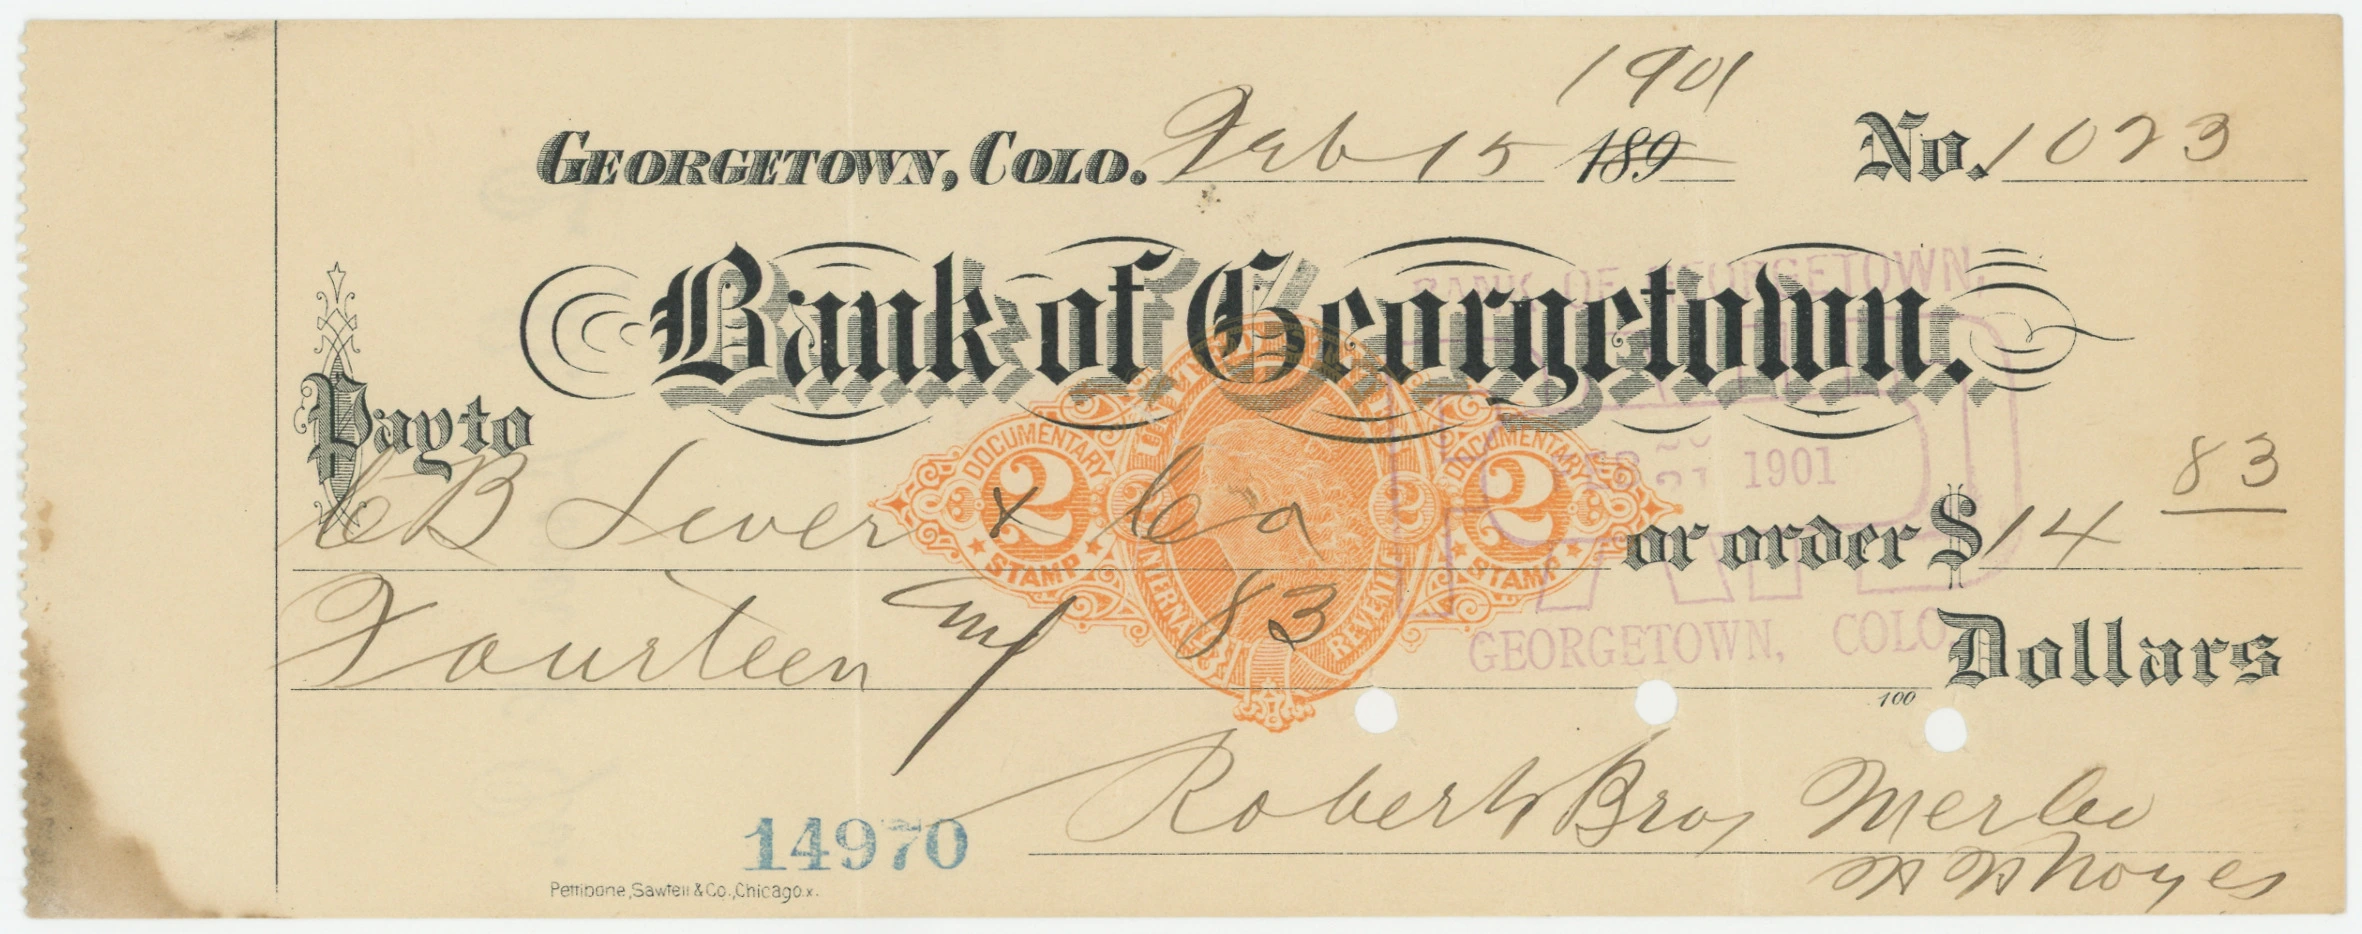 1901
GEORGETOWN, COLO. Feb 15 189 No. 1023
Bank of Georgetown.
BANK OF GEORGETOWN,
Pay to
C B Sever & Co or order $ 14 83
Fourteen and 83 100 Dollars
UNITED STATES INTERNAL REVENUE
DOCUMENTARY 2 STAMP
2 2
DOCUMENTARY 2 STAMP
PAID
FEB 21 1901
GEORGETOWN, COLO.
Roberts Bros Merc Co
Noyes
14970
Pettibone, Sawtell & Co., Chicago.